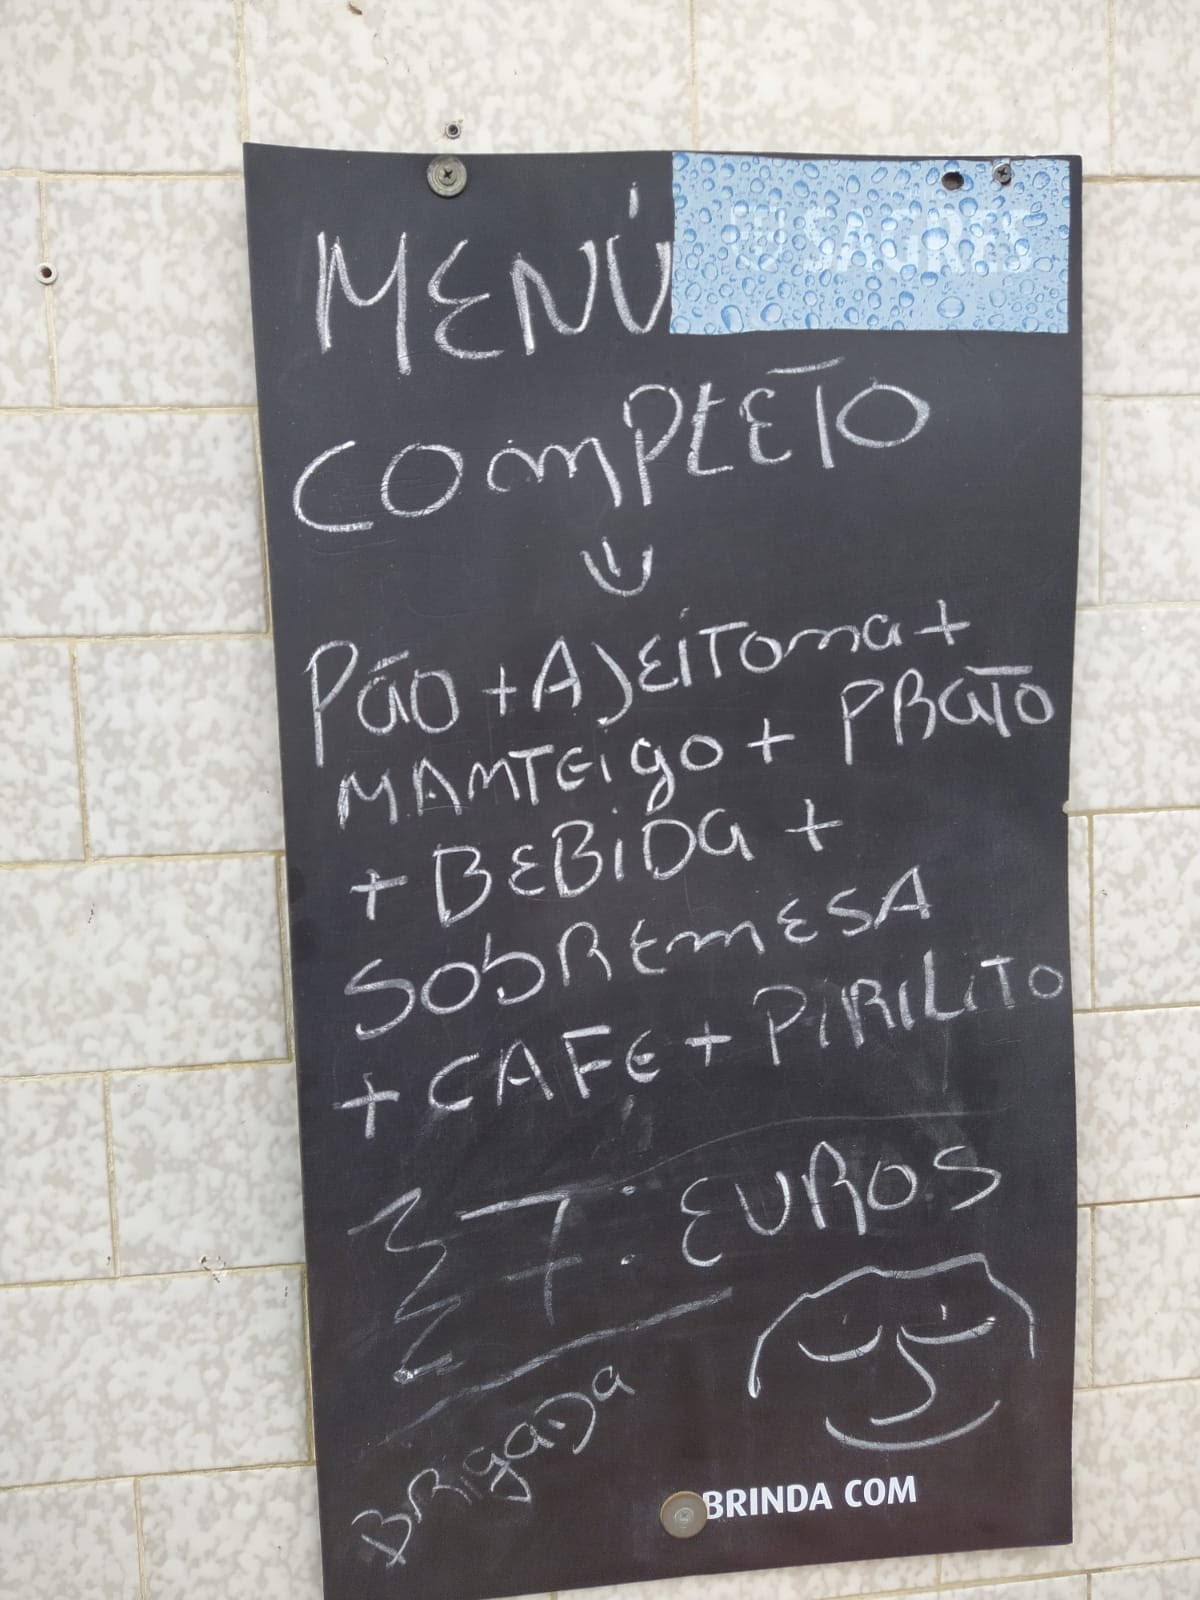 MENÚ
SAGRES
COMPLETO
PÃO + AJEITONA +
MANTEIGO + PRATO
+ BEBIDA +
SOBREMESA
+ CAFE + PIRILITO
7: EUROS
BRIGADA
BRINDA COM